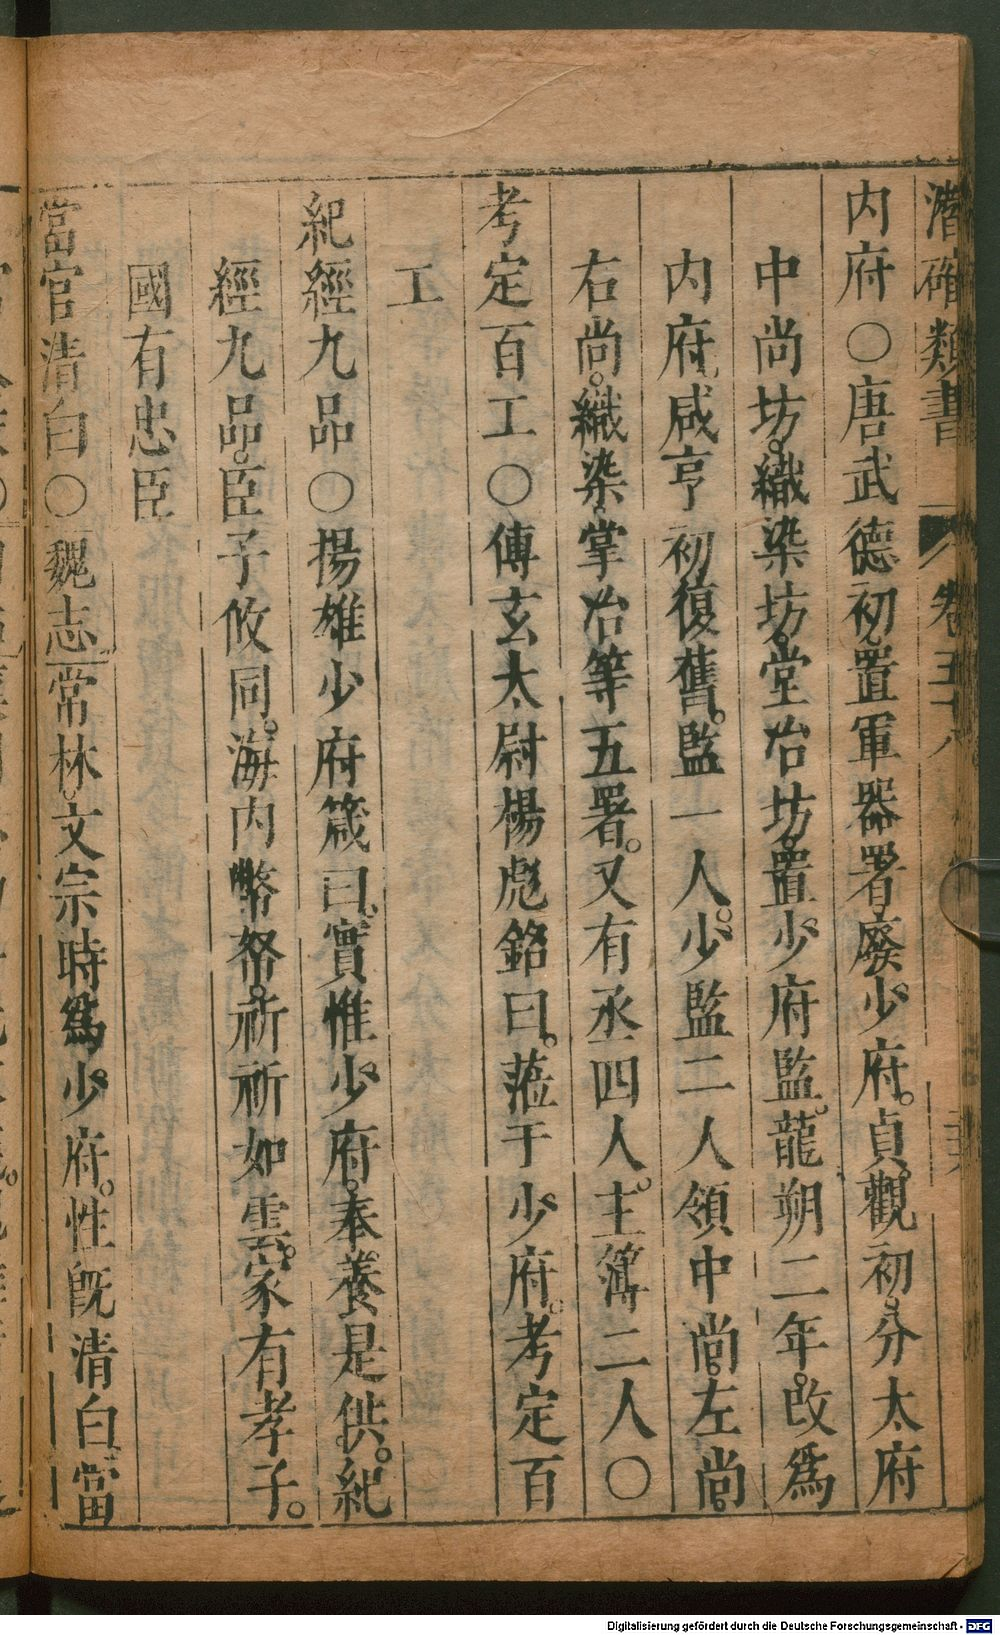 潛確類書 卷五十八
內府○唐武德初置軍器署廢少府。貞觀初分太府
中尚坊織染坊堂冶坊置少府監。龍朔二年。改為
內府咸亨初復舊。監一人。少監二人領中尚。左尚
右尚。織染掌冶等五署。又有丞四人。主簿二人○
考定百工○傅玄太尉楊彪銘曰。蒞于少府。考定百
工
紀經九品○揚雄少府箴曰實惟少府。奉養是供。紀
經九品。臣子攸同。海內幣帑。祈祈如雲。家有孝子。
國有忠臣
當官清白○魏志常林文宗時為少府。性既清白當
Digitalisierung gefördert durch die Deutsche Forschungsgemeinschaft - DFG